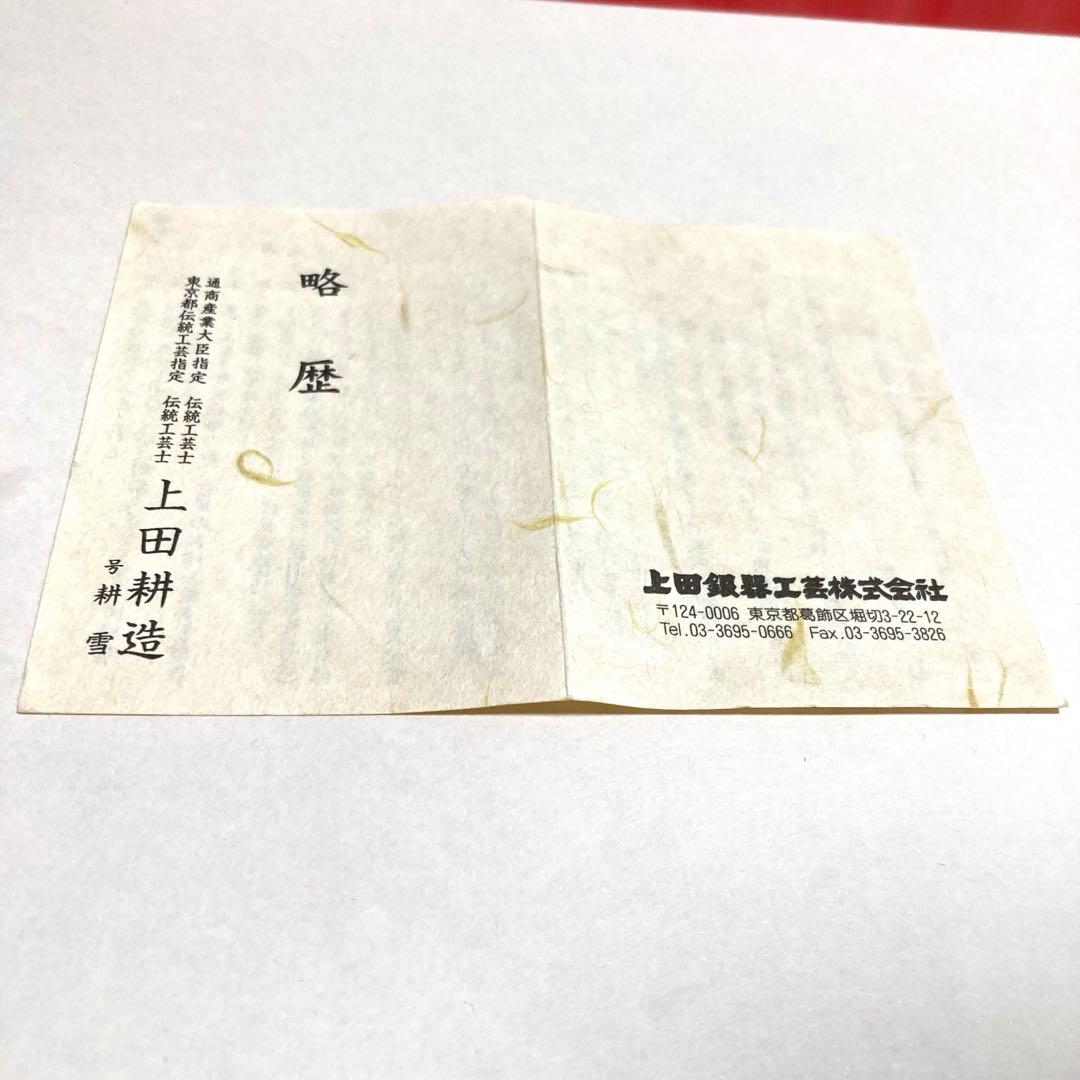 略歴
通商産業大臣指定 伝統工芸士
東京都伝統工芸指定 伝統工芸士
上田耕造
号 耕雪
上田銀器工芸株式会社
〒124-0006 東京都葛飾区堀切3-22-12
Tel.03-3695-0666 Fax.03-3695-3826